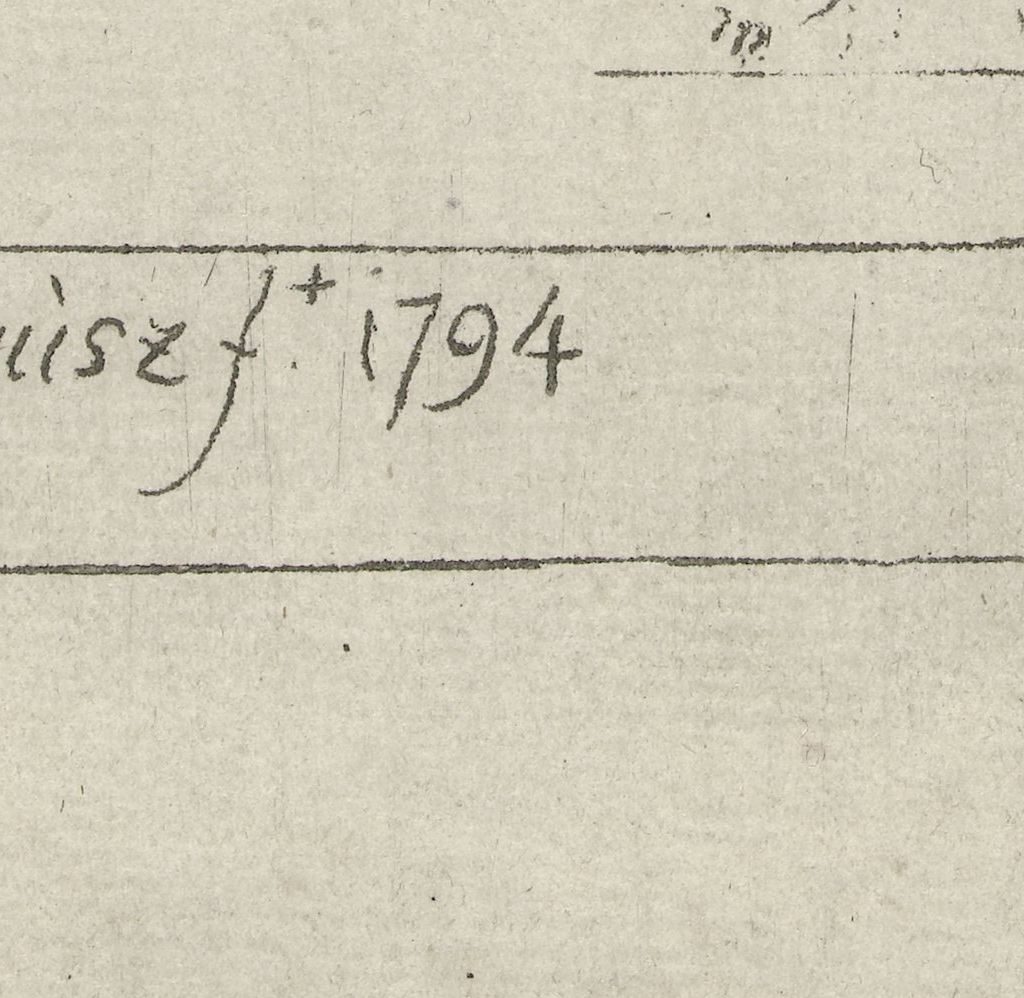 uisz f.t 1794